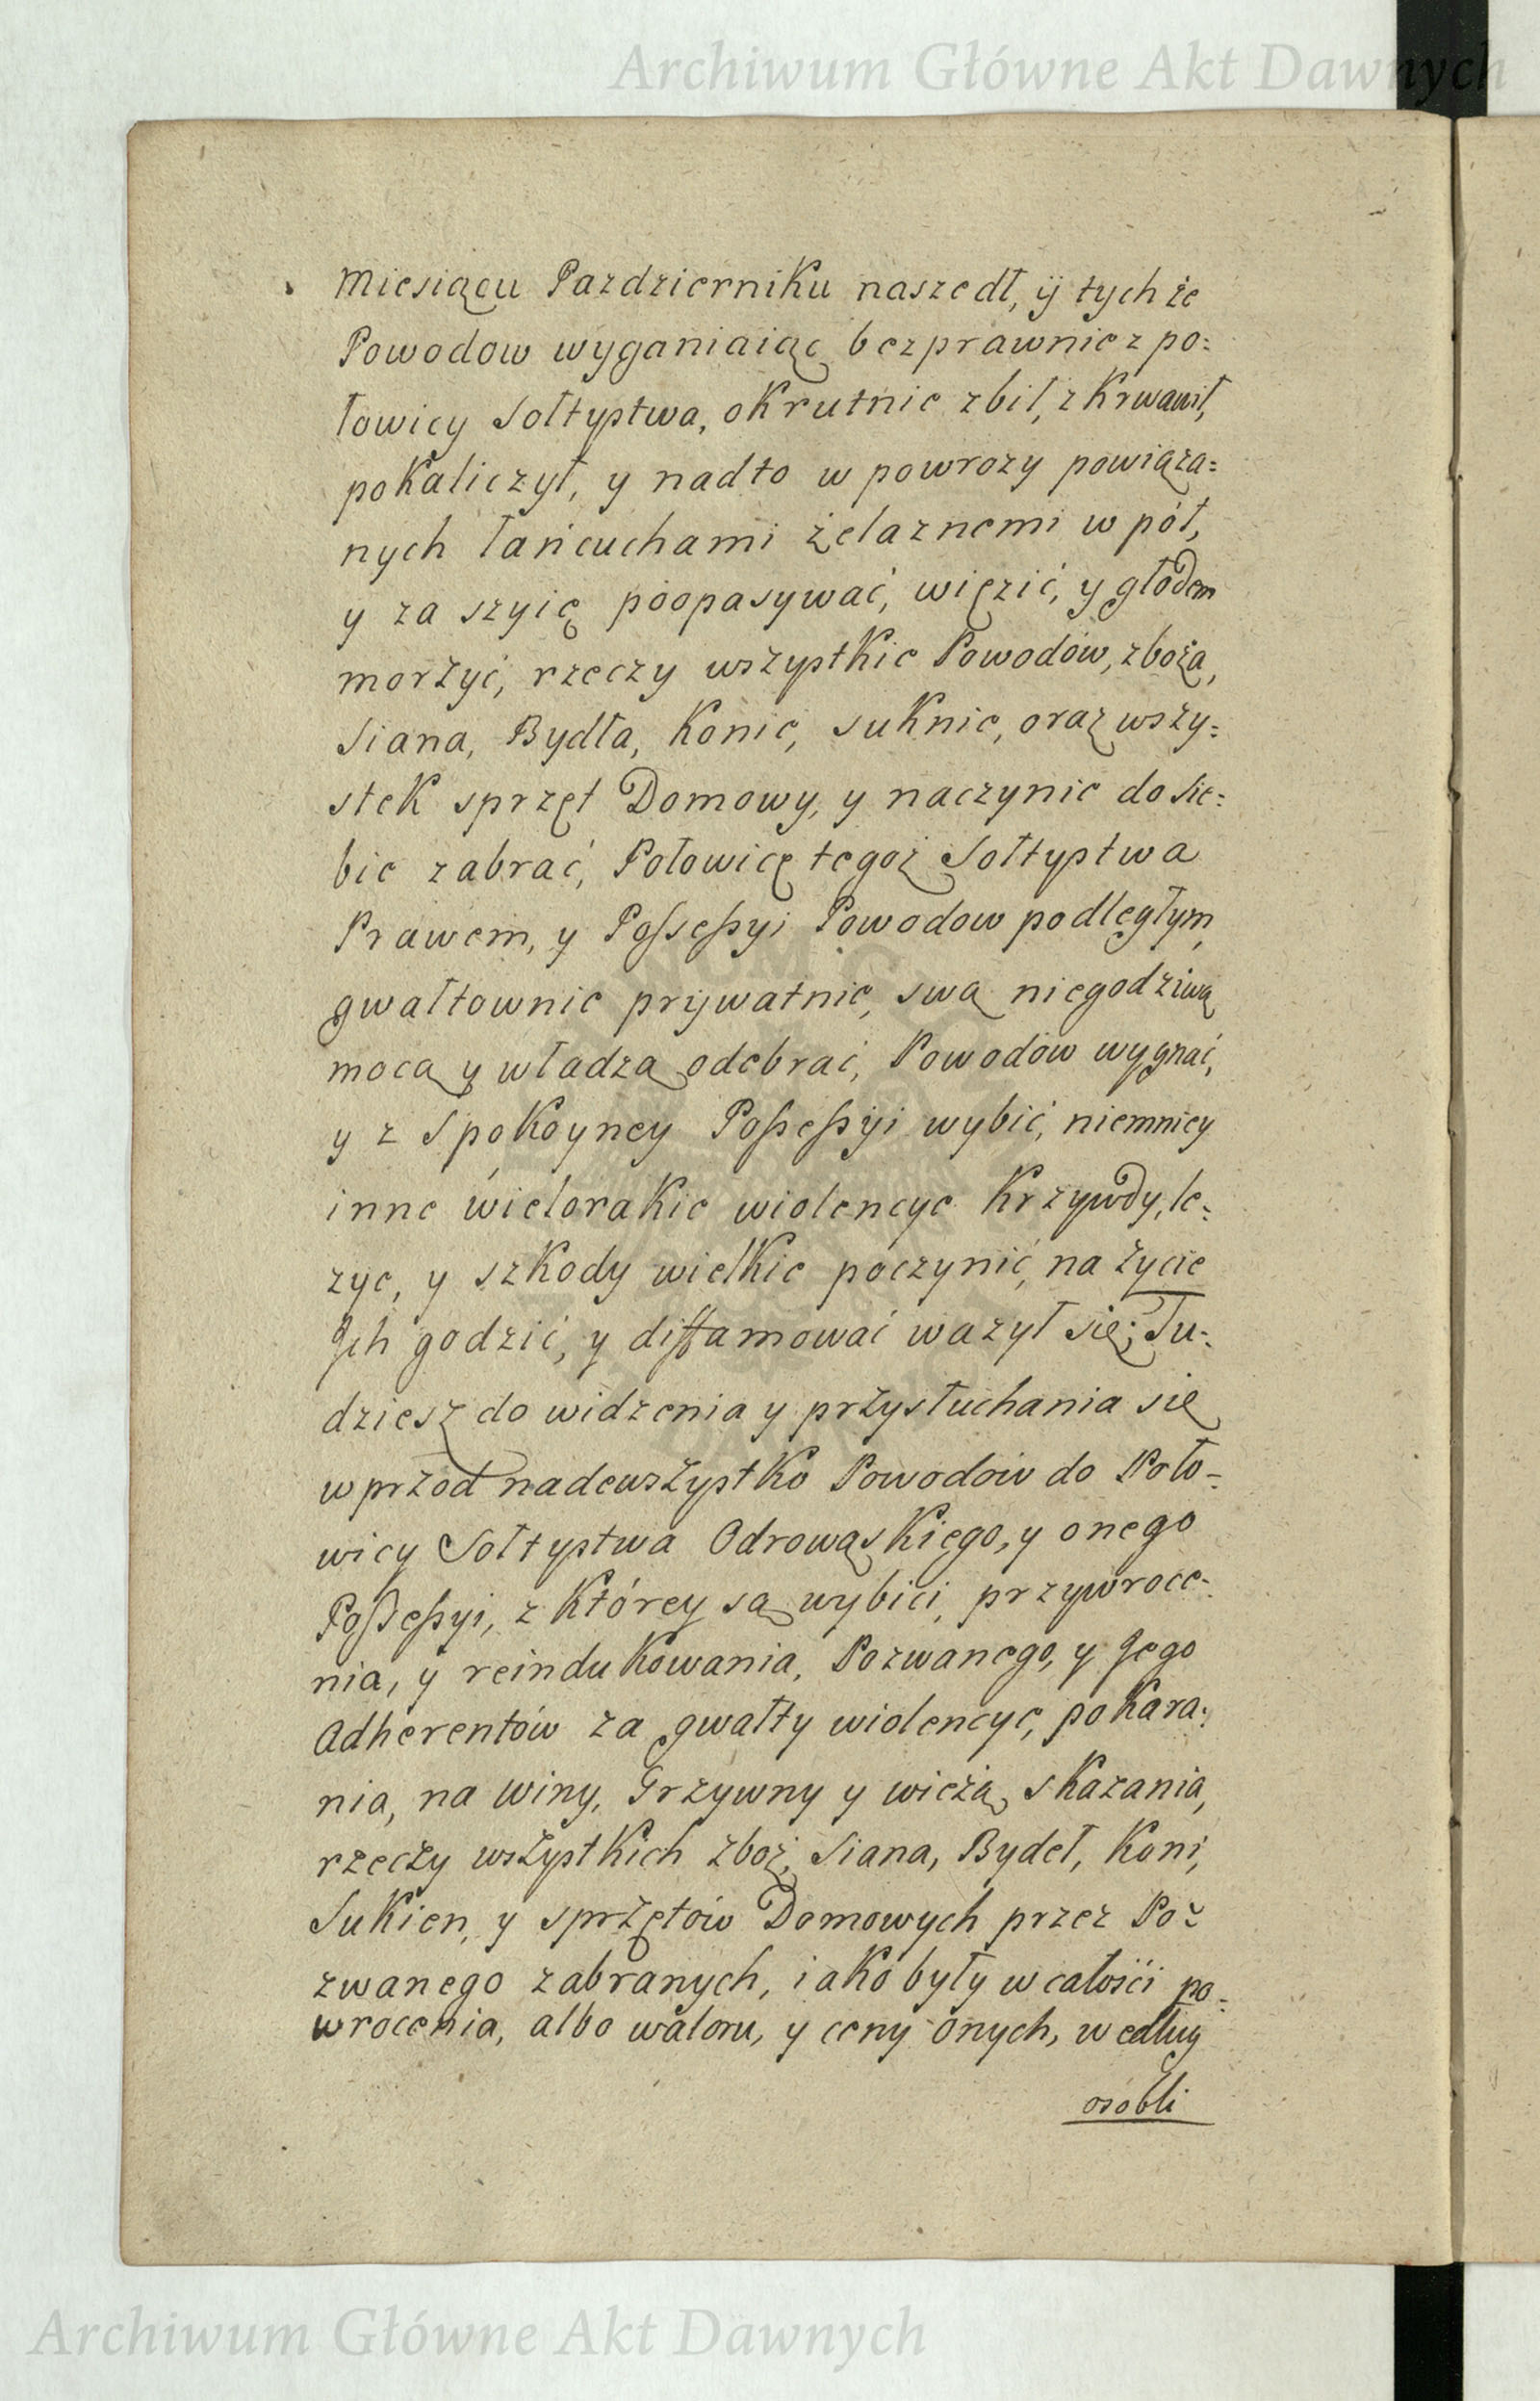 Archiwum Główne Akt Dawnych
Miesiącu Pazdzierniku naszedł, ÿ tychże
Powodow wyganiaiąc bezprawnie z po:
łowicy Sołtystwa, okrutnie zbił, zkrwawił,
pokaliczył, y nadto w powrozy powiąza:
nych łańcuchami żelaznemi w pół,
y za szyię poopasywać, więzić, y głodem
morzyć, rzeczy wszystkie Powodów, zboża,
Siana, Bydła, Konie, suknie, oraz wszy:
stek sprzęt Domowy, y naczynie do Sie:
bie zabrać, Połowicę tegoż Sołtystwa
Prawem, y Possessyi Powodow podległym
gwałtownie prywatnie, swą niegodziwą
mocą y władzą odebrać, Powodów wygnać,
y z Spokoyney Possessyi wybić, niemniey
inne wielorakie wiolencye Krzywdy, le:
zye, y szkody wielkie poczynić, na życie
Ich godzić, y diffamować wazył się; Tu:
dziesz do widzenia y przysłuchania się
wprzod nadewszystko Powodów do Poło-
wicy Sołtystwa Odrowąskiego, y onego
Possessyi, z Którey są wybici, przywroce-
nia, y reindukowania, Pozwanego, y Jego
Adherentów za gwałty wiolencye, pokara:
nia, na winy, Grzywny y wieżą skazania,
rzeczy wszystkich zboż, Siana, Bydeł, Koni,
Sukien, y sprzętów Domowych przez Po:
zwanego zabranych, iako były w całości po:
wrocenia, albo waloru, y ceny onych, według
osobli
Archiwum Główne Akt Dawnych